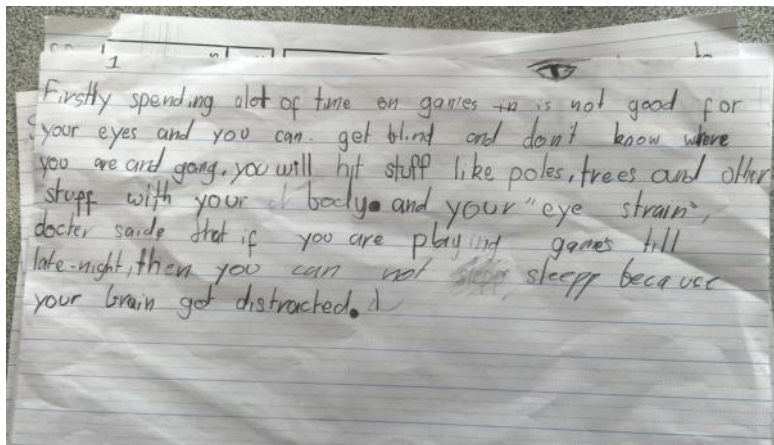 1
Firstly spending alot of time on games is not good for
your eyes and you can. get blind and don't know where
you are and gong. you will hit stuff like poles, trees and other
stuff with your body. and your "eye strain",
docter saide that if you are playing games till
late-night, then you can not sleepp because
your brain got distracted.